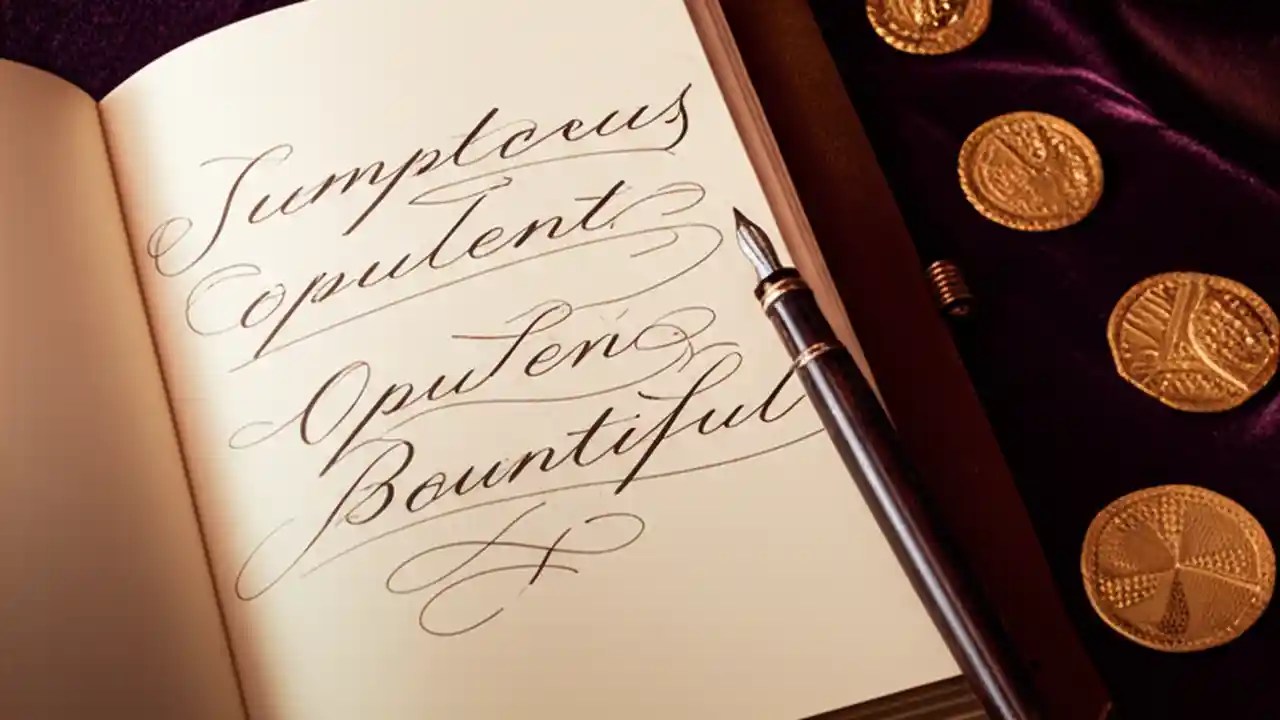 Sumptceus
Copulent
Opulenc
Bountiful